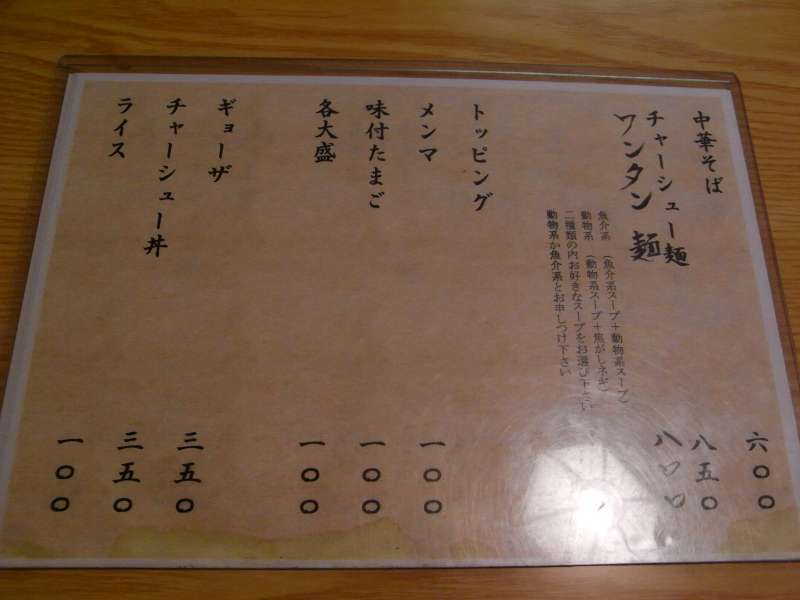 中華そば 六〇〇
チャーシュー麺 八五〇
ワンタン麺 八〇〇
魚介系 (魚介系スープ+動物系スープ)
動物系 (動物系スープ+焦がしネギ)
二種類の内お好きなスープをお選び下さい
動物系か魚介系とお申しつけ下さい
トッピング
メンマ 一〇〇
味付たまご 一〇〇
各大盛 一〇〇
ギョーザ 三五〇
チャーシュー丼 三五〇
ライス 一〇〇